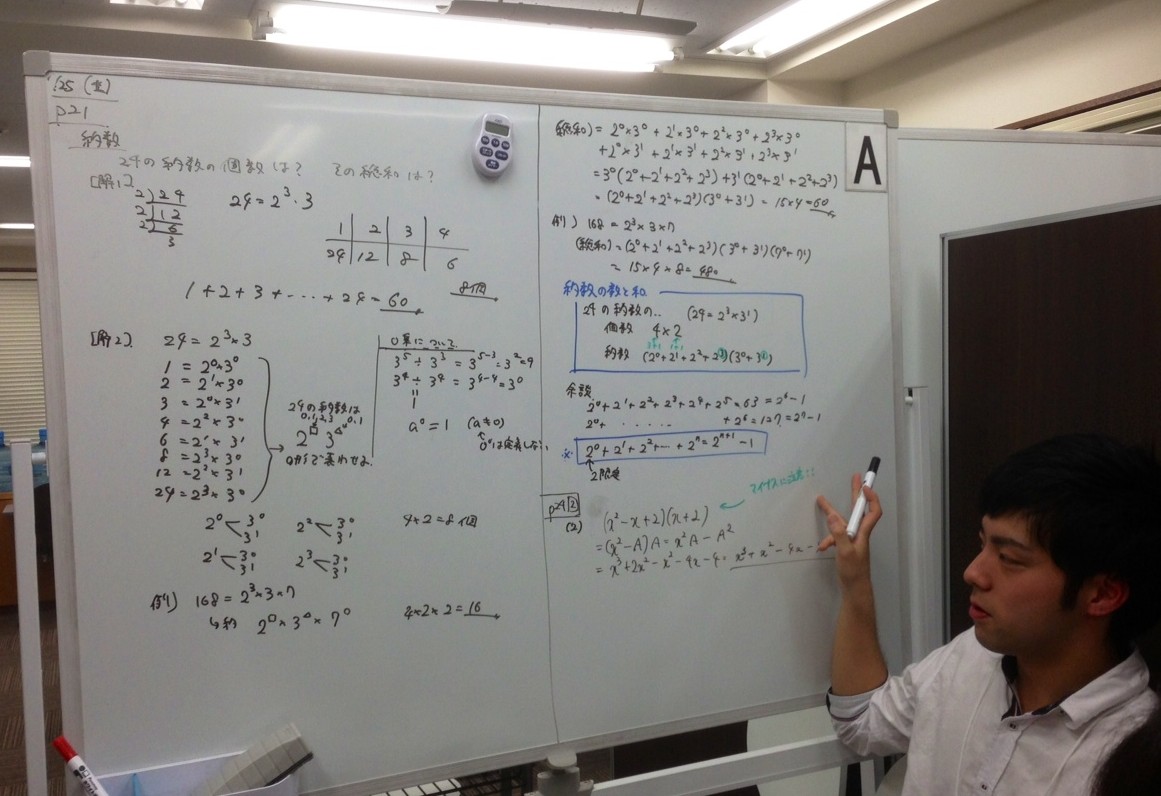 1/25 (土)
p21
約数
24の約数の個数は? その総和は?
[解1]
2)24
2)12
2)6
3
24=2³・3
1 2 3 4
24 12 8 6
8個
1+2+3+・・・+24=60
[解2] 24=2³×3
1 = 2⁰×3⁰
2 = 2¹×3⁰
3 = 2⁰×3¹
4 = 2²×3⁰
6 = 2¹×3¹
8 = 2³×3⁰
12 = 2²×3¹
24 = 2³×3¹
24の約数は
0,1,2,3 0,1
2□ 3△
の形で表わせる.
0乗について
3⁵÷3³=3⁵⁻³=3²=9
3⁴÷3⁴=3⁴⁻⁴=3⁰
=
1
a⁰=1 (a≠0)
0⁰は定義しない
2⁰<3⁰ 3¹ 2²<3⁰ 3¹
2¹<3⁰ 3¹ 2³<3⁰ 3¹
4×2=8個
例) 168=2³×3×7
↳約 2□×3△×7⁰
4×2×2=16
(総和)= 2⁰×3⁰+2¹×3⁰+2²×3⁰+2³×3⁰
+2⁰×3¹+2¹×3¹+2²×3¹+2³×3¹
=3⁰(2⁰+2¹+2²+2³)+3¹(2⁰+2¹+2²+2³)
=(2⁰+2¹+2²+2³)(3⁰+3¹)=15×4=60
例) 168=2³×3×7
(総和)=(2⁰+2¹+2²+2³)(3⁰+3¹)(7⁰+7¹)
=15×4×8=480
約数の数と和
24の約数の.. (24=2³×3¹)
個数 4×2
3+1 1+1
約数 (2⁰+2¹+2²+2³)(3⁰+3¹)
余談
2⁰+2¹+2²+2³+2⁴+2⁵=63=2⁶-1
2⁰+ ・・・・・ +2⁶=127=2⁷-1
※ 2⁰+2¹+2²+・・・+2ⁿ=2ⁿ⁺¹-1
↑
2限定
p24[2]
(2) (x²-x+2)(x+2)
マイナスに注意!!
=(x²-A)A=x²A-A²
=x³+2x²-x²-4x-4=x³+x²-4x-
A